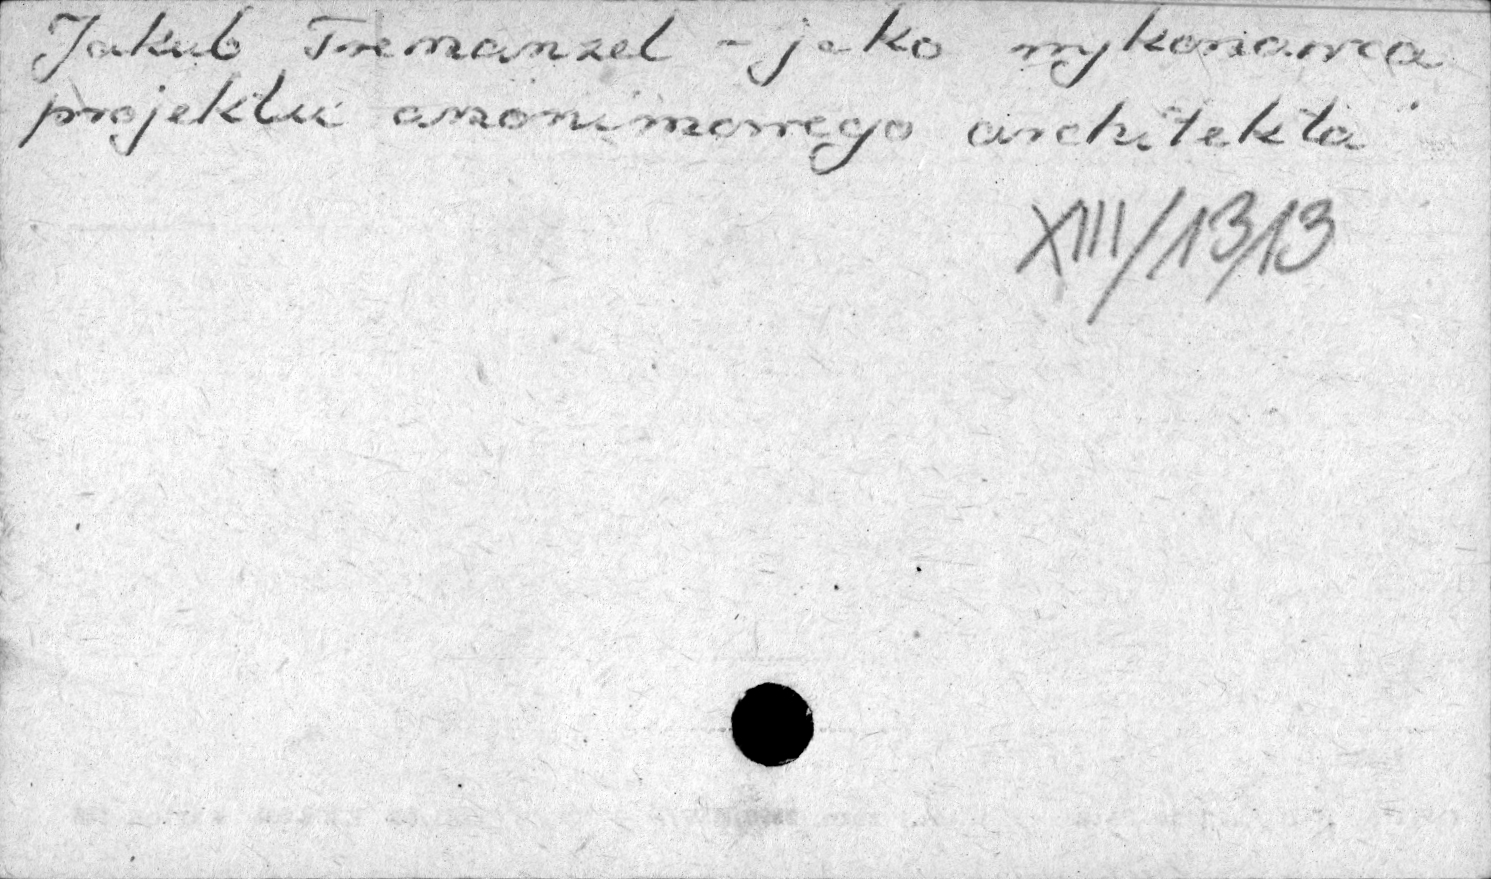 Jakub Tremanzel - jako wykonawca
projektu anonimowego architekta
XIII/1313